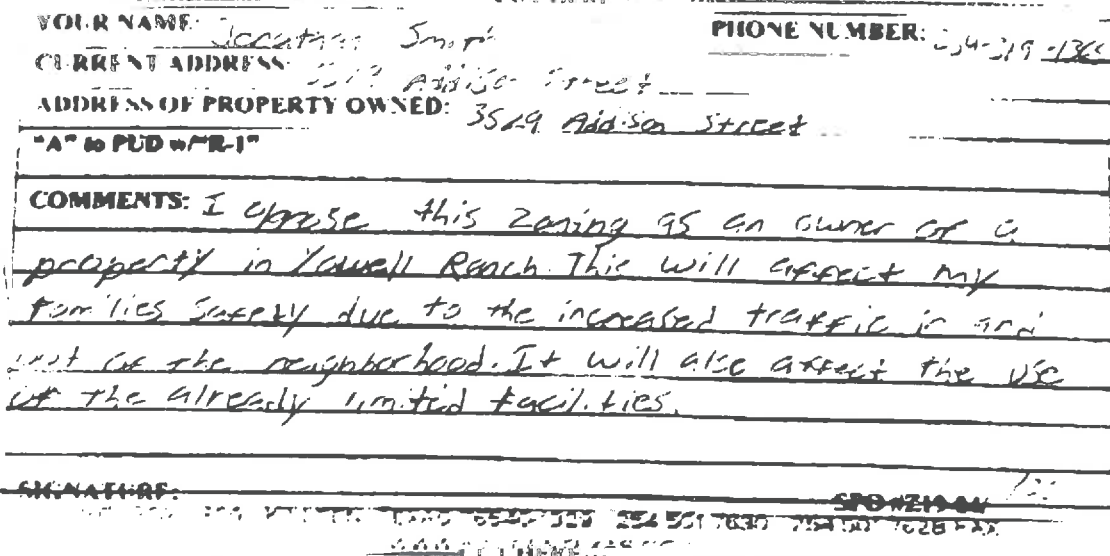 YOUR NAME: Jonathan Smith PHONE NUMBER:
CURRENT ADDRESS: Addison Street
ADDRESS OF PROPERTY OWNED: 3529 Addison Street
"A" to PUD w/"R-1"
COMMENTS: I oppose this zoning as an owner of a
property in Yowell Ranch. This will affect my
families safety due to the increased traffic in and
out of the neighborhood. It will also affect the use
of the already limited facilities.
SIGNATURE: SPO #Z19-04
254 501 7630 7628 FAX